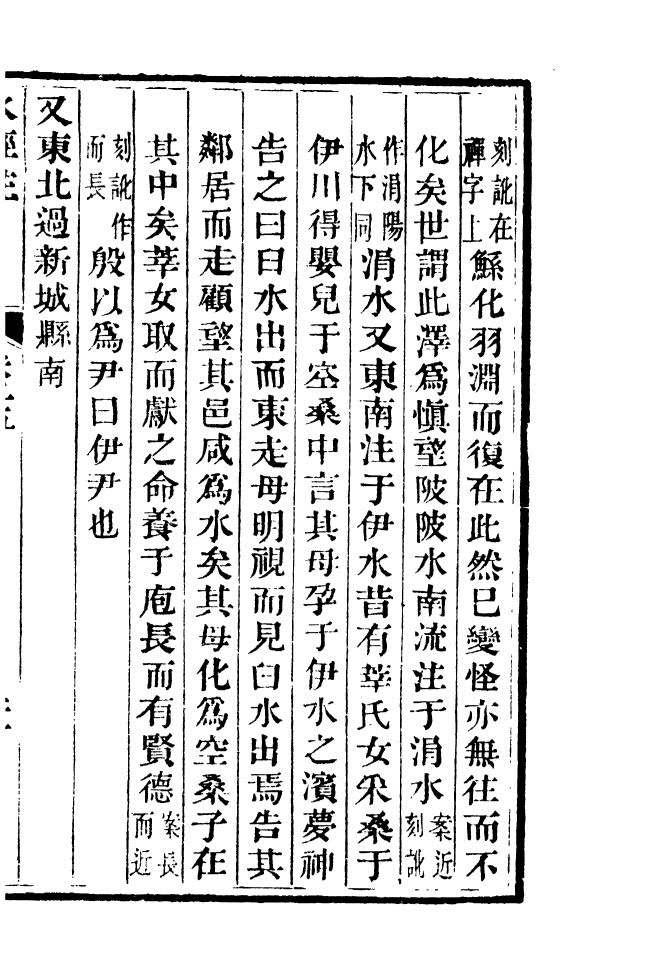 刻訛在禪字上鯀化羽淵而復在此然已變怪亦無往而不
化矣世謂此澤爲慎望陂陂水南流注于涓水案近刻訛
作涓陽水下同涓水又東南注于伊水昔有莘氏女采桑于
伊川得嬰兒于空桑中言其母孕于伊水之濱夢神
告之曰臼水出而東走母明視而見臼水出焉告其
鄰居而走顧望其邑咸爲水矣其母化爲空桑子在
其中矣莘女取而獻之命養于庖長而有賢德案長而近
刻訛作而長殷以爲尹曰伊尹也
又東北過新城縣南
水經注